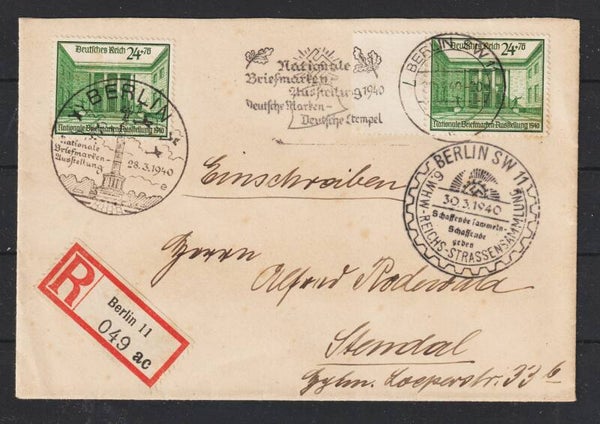 Deutsches Reich 24+76
Nationale Briefmarken-Ausstellung 1940
BERLIN
Nationale
Briefmarken-
Ausstellung
28.3.1940
e
Nationale
Briefmarken
Ausstellung 1940
Deutsche Marken-
Deutsche Stempel
BERLIN SW
Deutsches Reich 24+76
Nationale Briefmarken-Ausstellung 1940
BERLIN SW 11
30.3.1940
Schaffende sammeln-
Schaffende
geben
6.WHW-REICHS-STRASSENSAMMLUNG
Einschreiben
Herrn
Alfred Rodewald
Stendal
R
Berlin 11
049 ac